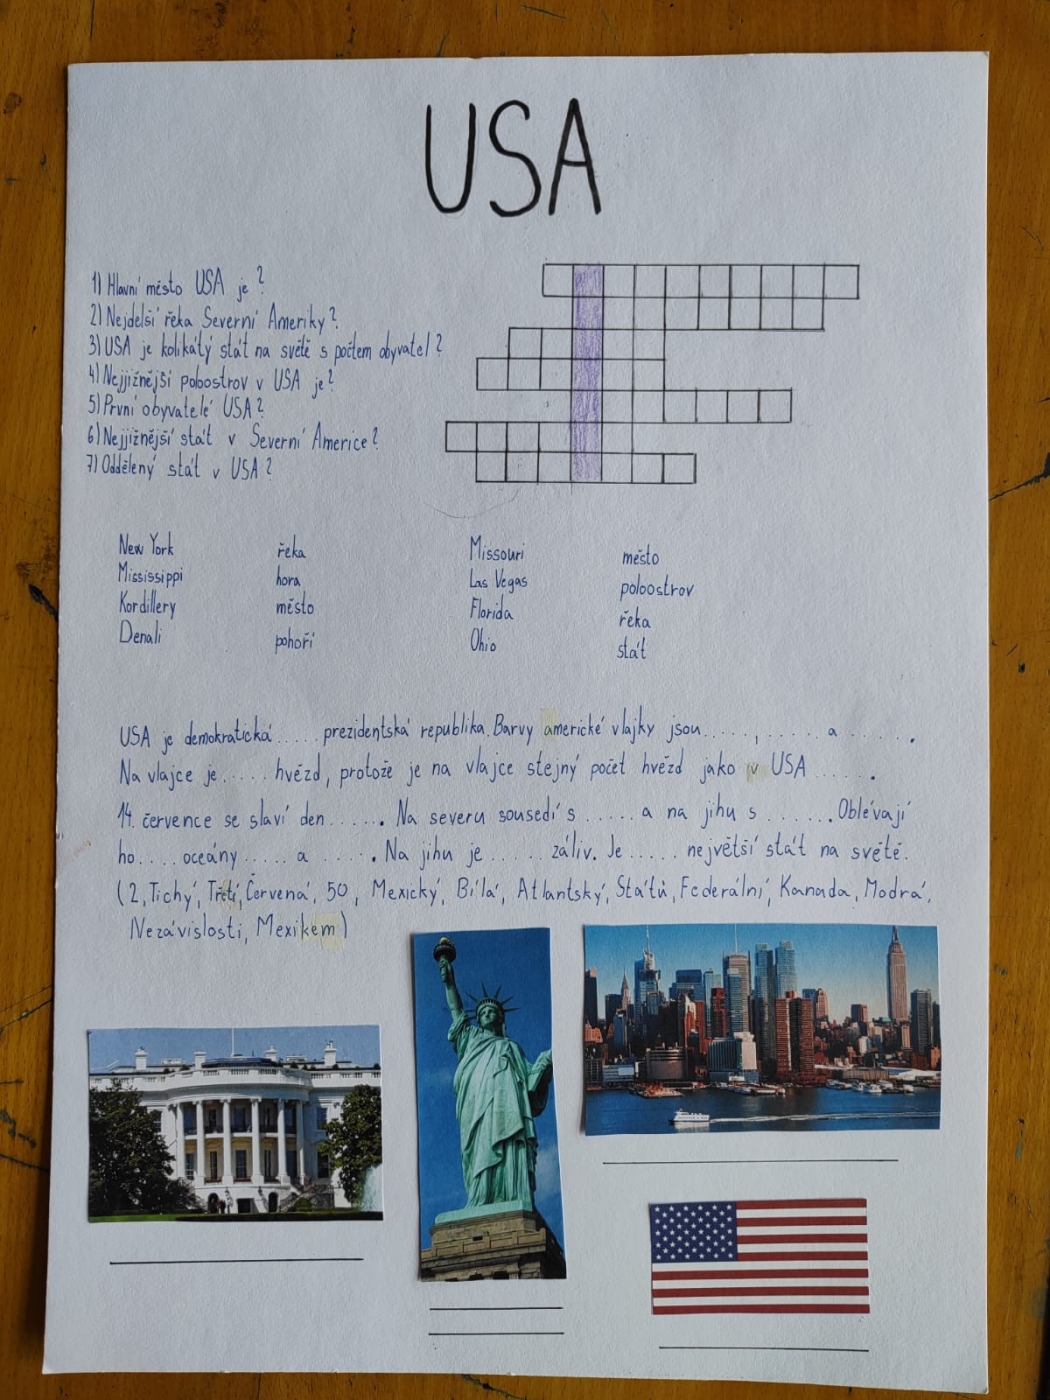 USA
1) Hlavní město USA je?
2) Nejdelší řeka Severní Ameriky?
3) USA je kolikátý stát na světě s počtem obyvatel?
4) Nejjižnější poloostrov v USA je?
5) První obyvatelé USA?
6) Nejjižnější stát v Severní Americe?
7) Oddělený stát v USA?
New York řeka Missouri město
Mississippi hora Las Vegas poloostrov
Kordillery město Florida řeka
Denali pohoří Ohio stát
USA je demokratická ..... prezidentská republika. Barvy americké vlajky jsou ....., ..... a ......
Na vlajce je ..... hvězd, protože je na vlajce stejný počet hvězd jako v USA ......
14. července se slaví den ...... Na severu sousedí s ..... a na jihu s ...... Oblévají
ho .... oceány ..... a ...... Na jihu je ..... záliv. Je ..... největší stát na světě.
(2, Tichý, Třetí, Červená, 50, Mexický, Bílá, Atlantský, Států, Federální, Kanada, Modrá,
Nezávislosti, Mexikem)